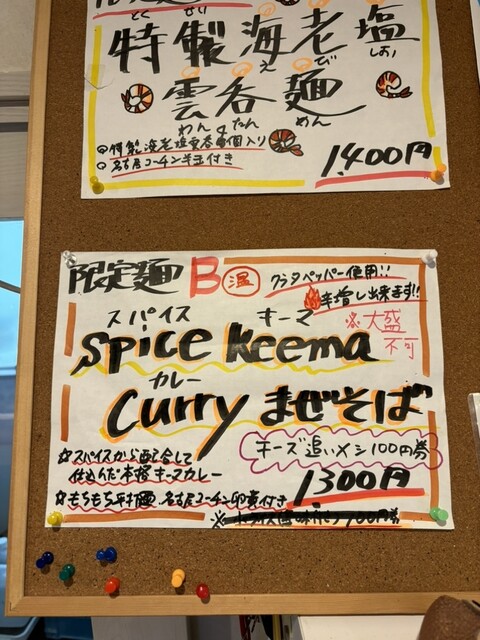 とく せい
特製海老塩
えび しお
雲呑麺
わんたん めん
◎特製海老塩雲呑4個入り
◎名古屋コーチン半玉付き
1,400円
限定麺 B 温
クラタペッパー使用!!
辛増し出来ます!!
※大盛不可
スパイス キーマ
spice Keema
カレー
curry まぜそば
チーズ追いメシ100円券
☆スパイスから配合して
仕込んだ本格キーマカレー
☆もちもち平打麺 名古屋コーチン卵黄付き
1,300円